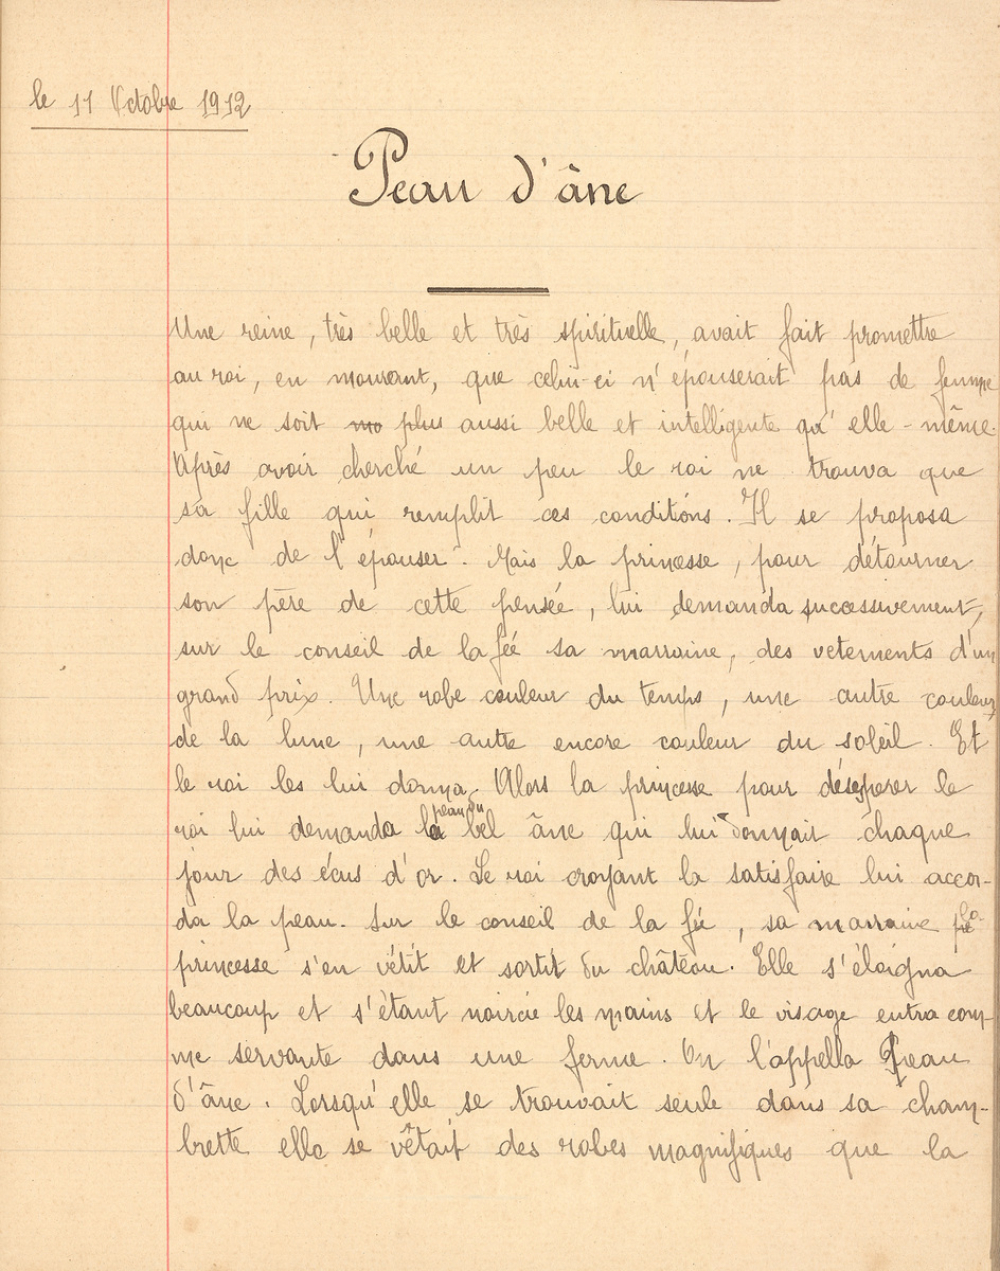 le 11 Octobre 1912
Peau d'âne
Une reine, très belle et très spirituelle, avait fait promettre
au roi, en mourant, que celui-ci n'épouserait pas de femme
qui ne soit plus aussi belle et intelligente qu'elle-même.
Après avoir cherché un peu le roi ne trouva que
sa fille qui remplit ces conditions. Il se proposa
donc de l'épouser. Mais la princesse, pour détourner
son père de cette pensée, lui demanda successivement,
sur le conseil de la fée sa marraine, des vetements d'un
grand prix. Une robe couleur du temps, une autre couleur
de la lune, une autre encore couleur du soleil. Et
le roi les lui donna. Alors la princesse pour désesperer le
roi lui demanda la peau du bel âne qui lui donnait chaque
jour des écus d'or. Le roi croyant la satisfaire lui accor-
da la peau. Sur le conseil de la fée, sa marraine la
princesse s'en vétit et sortit du château. Elle s'éloigna
beaucoup et s'étant noircie les mains et le visage entra com-
me servante dans une ferme. On l'appella Peau
d'âne. Lorsqu'elle se trouvait seule dans sa cham-
brette elle se vêtait des robes magnifiques que la